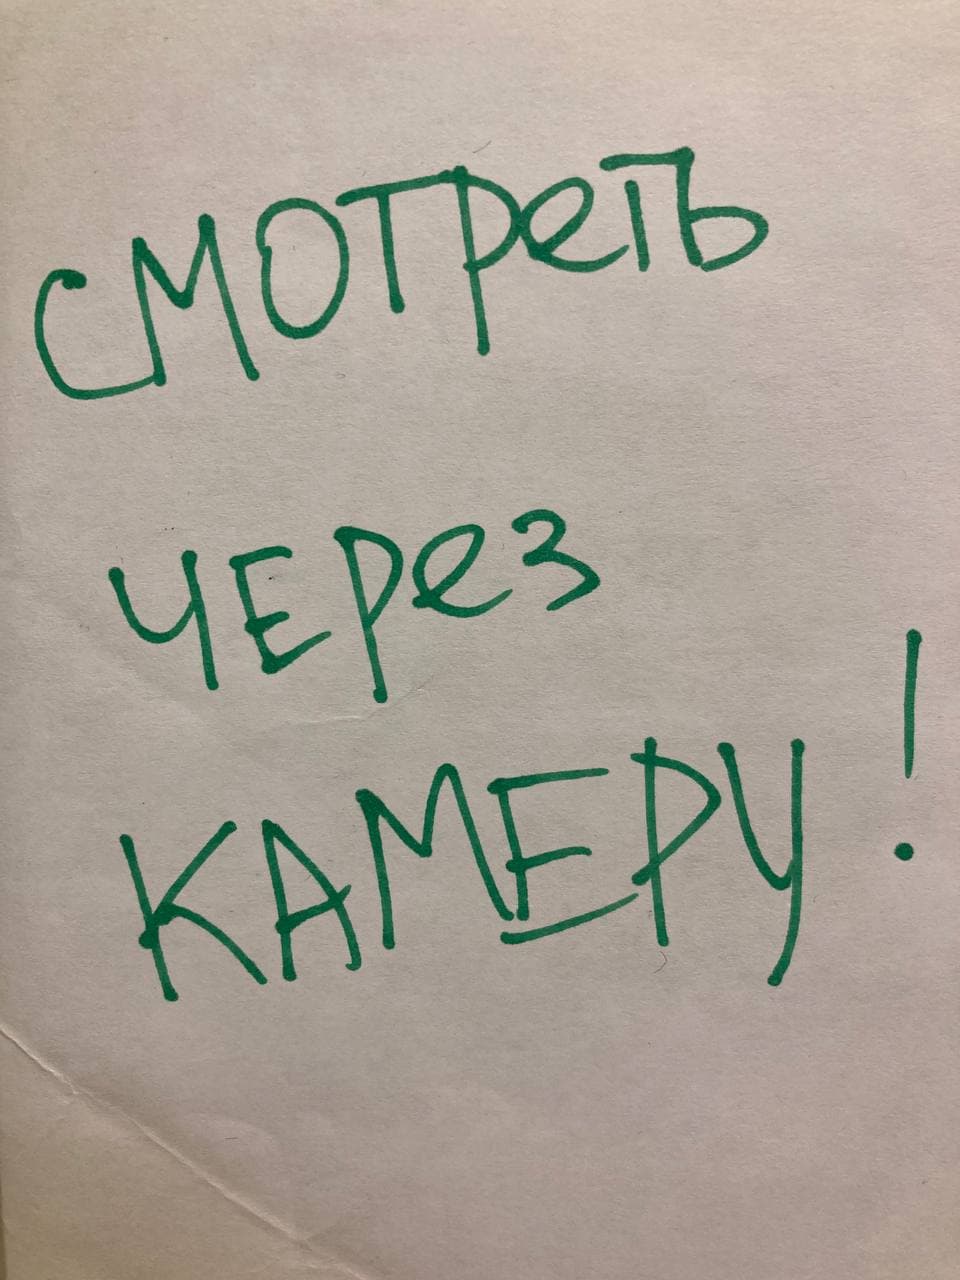 СМОТРеТЬ
ЧЕРез
КАМЕРУ!